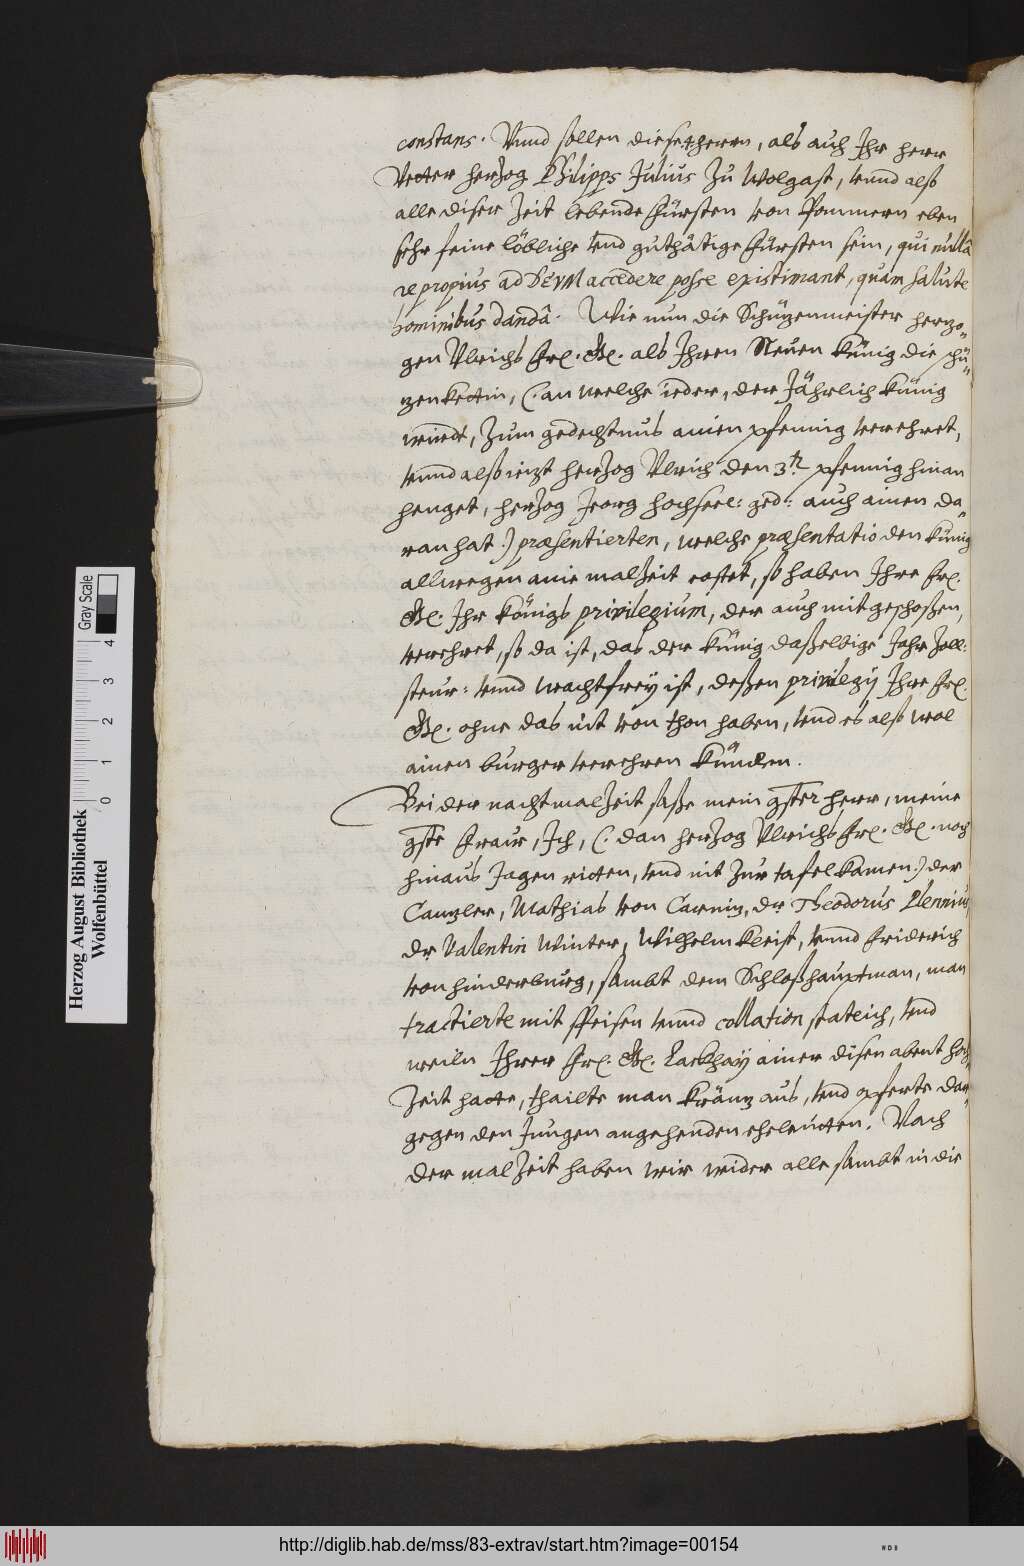 constans. Vnnd sollen diese herrn, als auch Ihr herr
Vetter herzog Philipps Julius zu Wolgast, vnnd alß
alle diser zeit lebende fürsten von Pommern eben
sehr feine löbliche vnd guthätige fürsten sein, qui nullâ
re propius ad DEVM accedere posse existimant, quam salute
hominibus dandâ. Wie nun die Schüzenmeister herzo„
gen Vlrichs frl. Gl. als Ihren Neuen künig die schü„
zenkettin, (. an welche ieder, der Jährlich künig
wirdt, zum gedechtnus ainen pfennig verehret,
vnnd alß iezt herzog Vlrich den 3.t pfennig hinan
henget, herzog Jeorg hochseel: ged: auch ainen da„
ran hat .) præsentierten, welche præsentatio den künig
allwegen aine malzeit costet, so haben Ihre frl.
Gl. Ihr königs privilegium, der auch mitgeschoßen,
verehret, so da ist, das der künig daßelbige Jahr zoll:
steur: vnnd wachtfrey ist, deßen privilegij Ihre frl.
Gl. ohne das nit von thon haben, vnd es alß wol
ainen burger verehren künden.
Bei der nachtmalzeit saße mein gster herr, meine
gste fraur, Ich, (. dan herzog Vlrichs frl. Gl. noch
hinaus Jagen ritten, vnd nit zur tafel kamen .) der
Canzler, Mathias von Carniz, dr. Theodorus Plennius,
dr Valentin Winter, Wilhelm kleist, vnnd friderich
von hinderburg, sambt dem Schloßhauptman, man
tractierte mit speisen vnnd collation stateich, vnd
weiln Ihrer frl. Gl. Lackhay ainer disen abent hoch„
zeit hatte, thailte man kränz aus, vnd opferte dar„
gegen den Jungen angehenden eheleutten. Nach
der malzeit haben wir wider alle sambt in die
Herzog August Bibliothek
Wolfenbüttel
Gray Scale
0 1 2 3 4
http://diglib.hab.de/mss/83-extrav/start.htm?image=00154